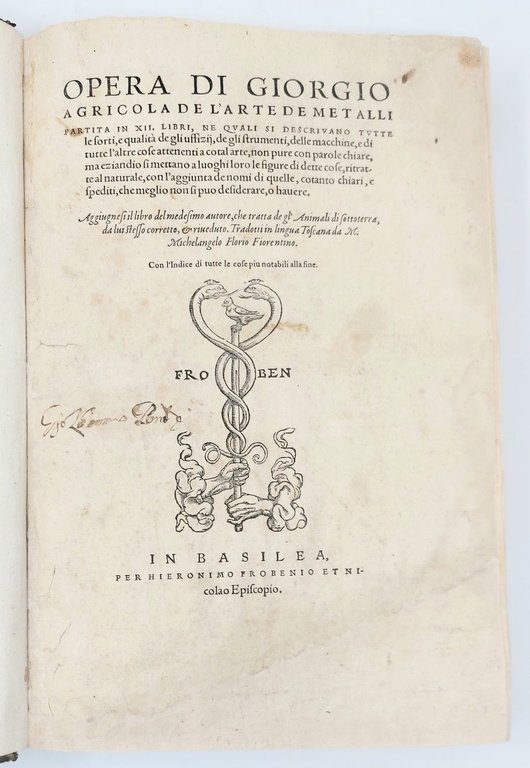 OPERA DI GIORGIO
AGRICOLA DE L'ARTE DE METALLI
PARTITA IN XII. LIBRI, NE QVALI SI DESCRIVANO TVTTE
le ſorti, e qualità de gli uffizij, de gli ſtrumenti, delle macchine, e di
tutte l'altre coſe attenenti a cotal arte, non pure con parole chiare,
ma eziandio ſi mettano a luoghi loro le figure di dette coſe, ritrat-
te al naturale, con l'aggiunta de nomi di quelle, cotanto chiari, e
ſpediti, che meglio non ſi puo deſiderare, o hauere.
Aggiugneſi il libro del medeſimo autore, che tratta de gl' Animali di ſottoterra,
da lui ſteſſo corretto, & riueduto. Tradotti in lingua Toſcana da M.
Michelangelo Florio Fiorentino.
Con l'Indice di tutte le coſe piu notabili alla fine.
FRO BEN
IN BASILEA,
PER HIERONIMO FROBENIO ET NI-
colao Epiſcopio.